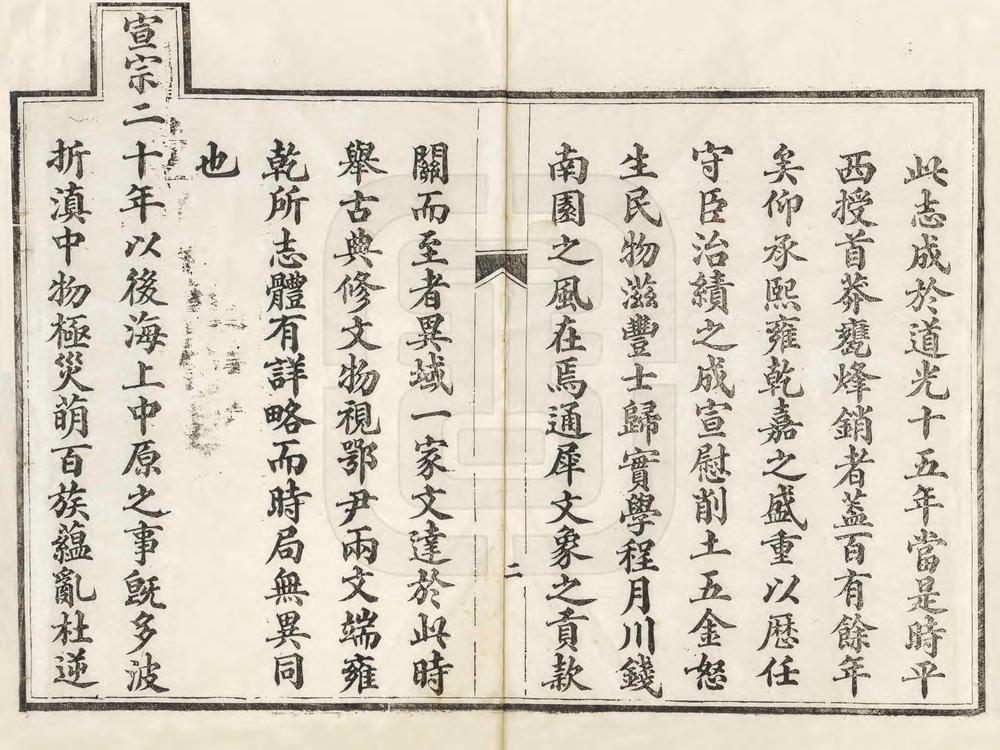 此志成於道光十五年當是時平
西授首莽甕烽銷者蓋百有餘年
矣仰承熙雍乾嘉之盛重以歷任
守臣治績之成宣慰削土五金怒
生民物滋豐士歸實學程月川錢
南園之風在焉通犀文象之貢款
二
關而至者異域一家文達於此時
舉古典修文物視鄂尹兩文端雍
乾所志體有詳略而時局無異同
也
宣宗二十年以後海上中原之事旣多波
折滇中物極災萌百族蘊亂杜逆